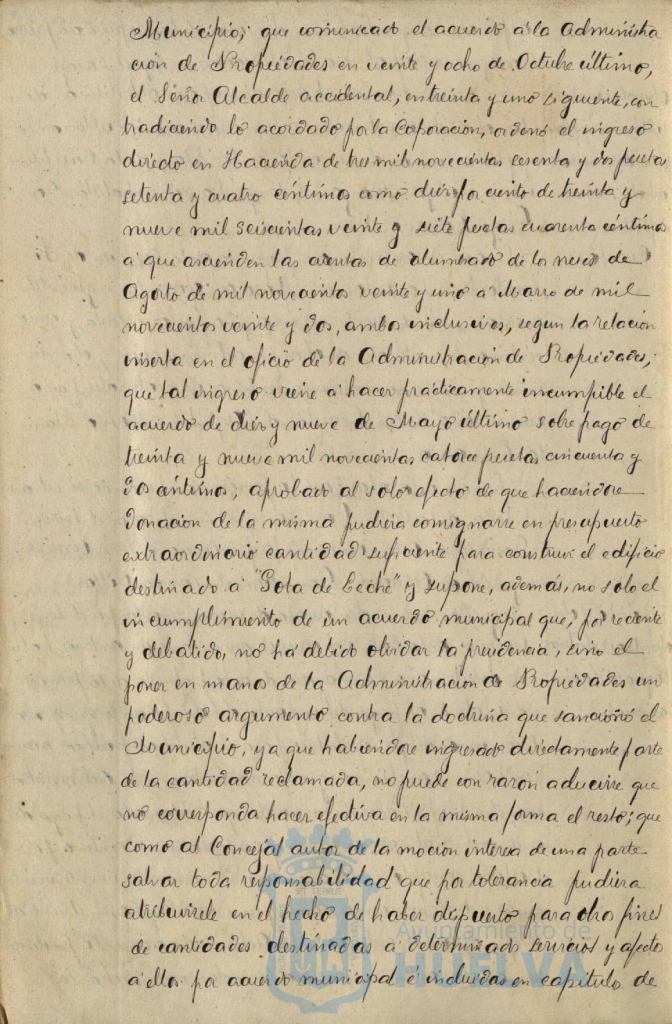 Municipio; que comunicado el acuerdo á la Administra
ción de Propiedades en veinte y ocho de Octubre último,
el Señor Alcalde accidental, en treinta y uno siguiente, con
tradiciendo lo acordado por la Corporación, ordenó el ingreso
directo en Hacienda de tres mil novecientas sesenta y dos pesetas
setenta y cuatro céntimos como diez por ciento de treinta y
nueve mil seiscientas veinte y siete pesetas cuarenta céntimos
á que ascienden las cuentas de alumbrado de los meses de
Agosto de mil novecientos veinte y uno á Marzo de mil
novecientos veinte y dos, ambos inclusives, segun la relación
inserta en el oficio de la Administración de Propiedades;
que tal ingreso viene á hacer prácticamente incumplible el
acuerdo de diez y nueve de Mayo último sobre pago de
treinta y nueve mil novecientas catorce pesetas cincuenta y
dos céntimos, aprobado al solo efecto de que haciendose
donación de la misma pudiera consignarse en presupuesto
extraordinario cantidad suficiente para construir el edificio
destinado á "Gota de Leche" y supone, además, no solo el
incumplimiento de un acuerdo municipal que, por reciente
y debatido, no há debido olvidar la presidencia, sino el
poner en manos de la Administración de Propiedades un
poderoso argumento contra la doctrina que sancionó el
Municipio, ya que habiéndose ingresado directamente parte
de la cantidad reclamada, no puede con razón aducirse que
no corresponda hacer efectiva en la misma forma el resto; que
como al Concejal autor de la moción interesa de una parte
salvar toda responsabilidad que por tolerancia pudiera
atribuirsele en el hecho de haber dispuesto para otro fines
de cantidades destinadas á determinado servicios y afecto
á ellos por acuerdo municipal é incluidas en capitulo de
Ayuntamiento de
HUELVA